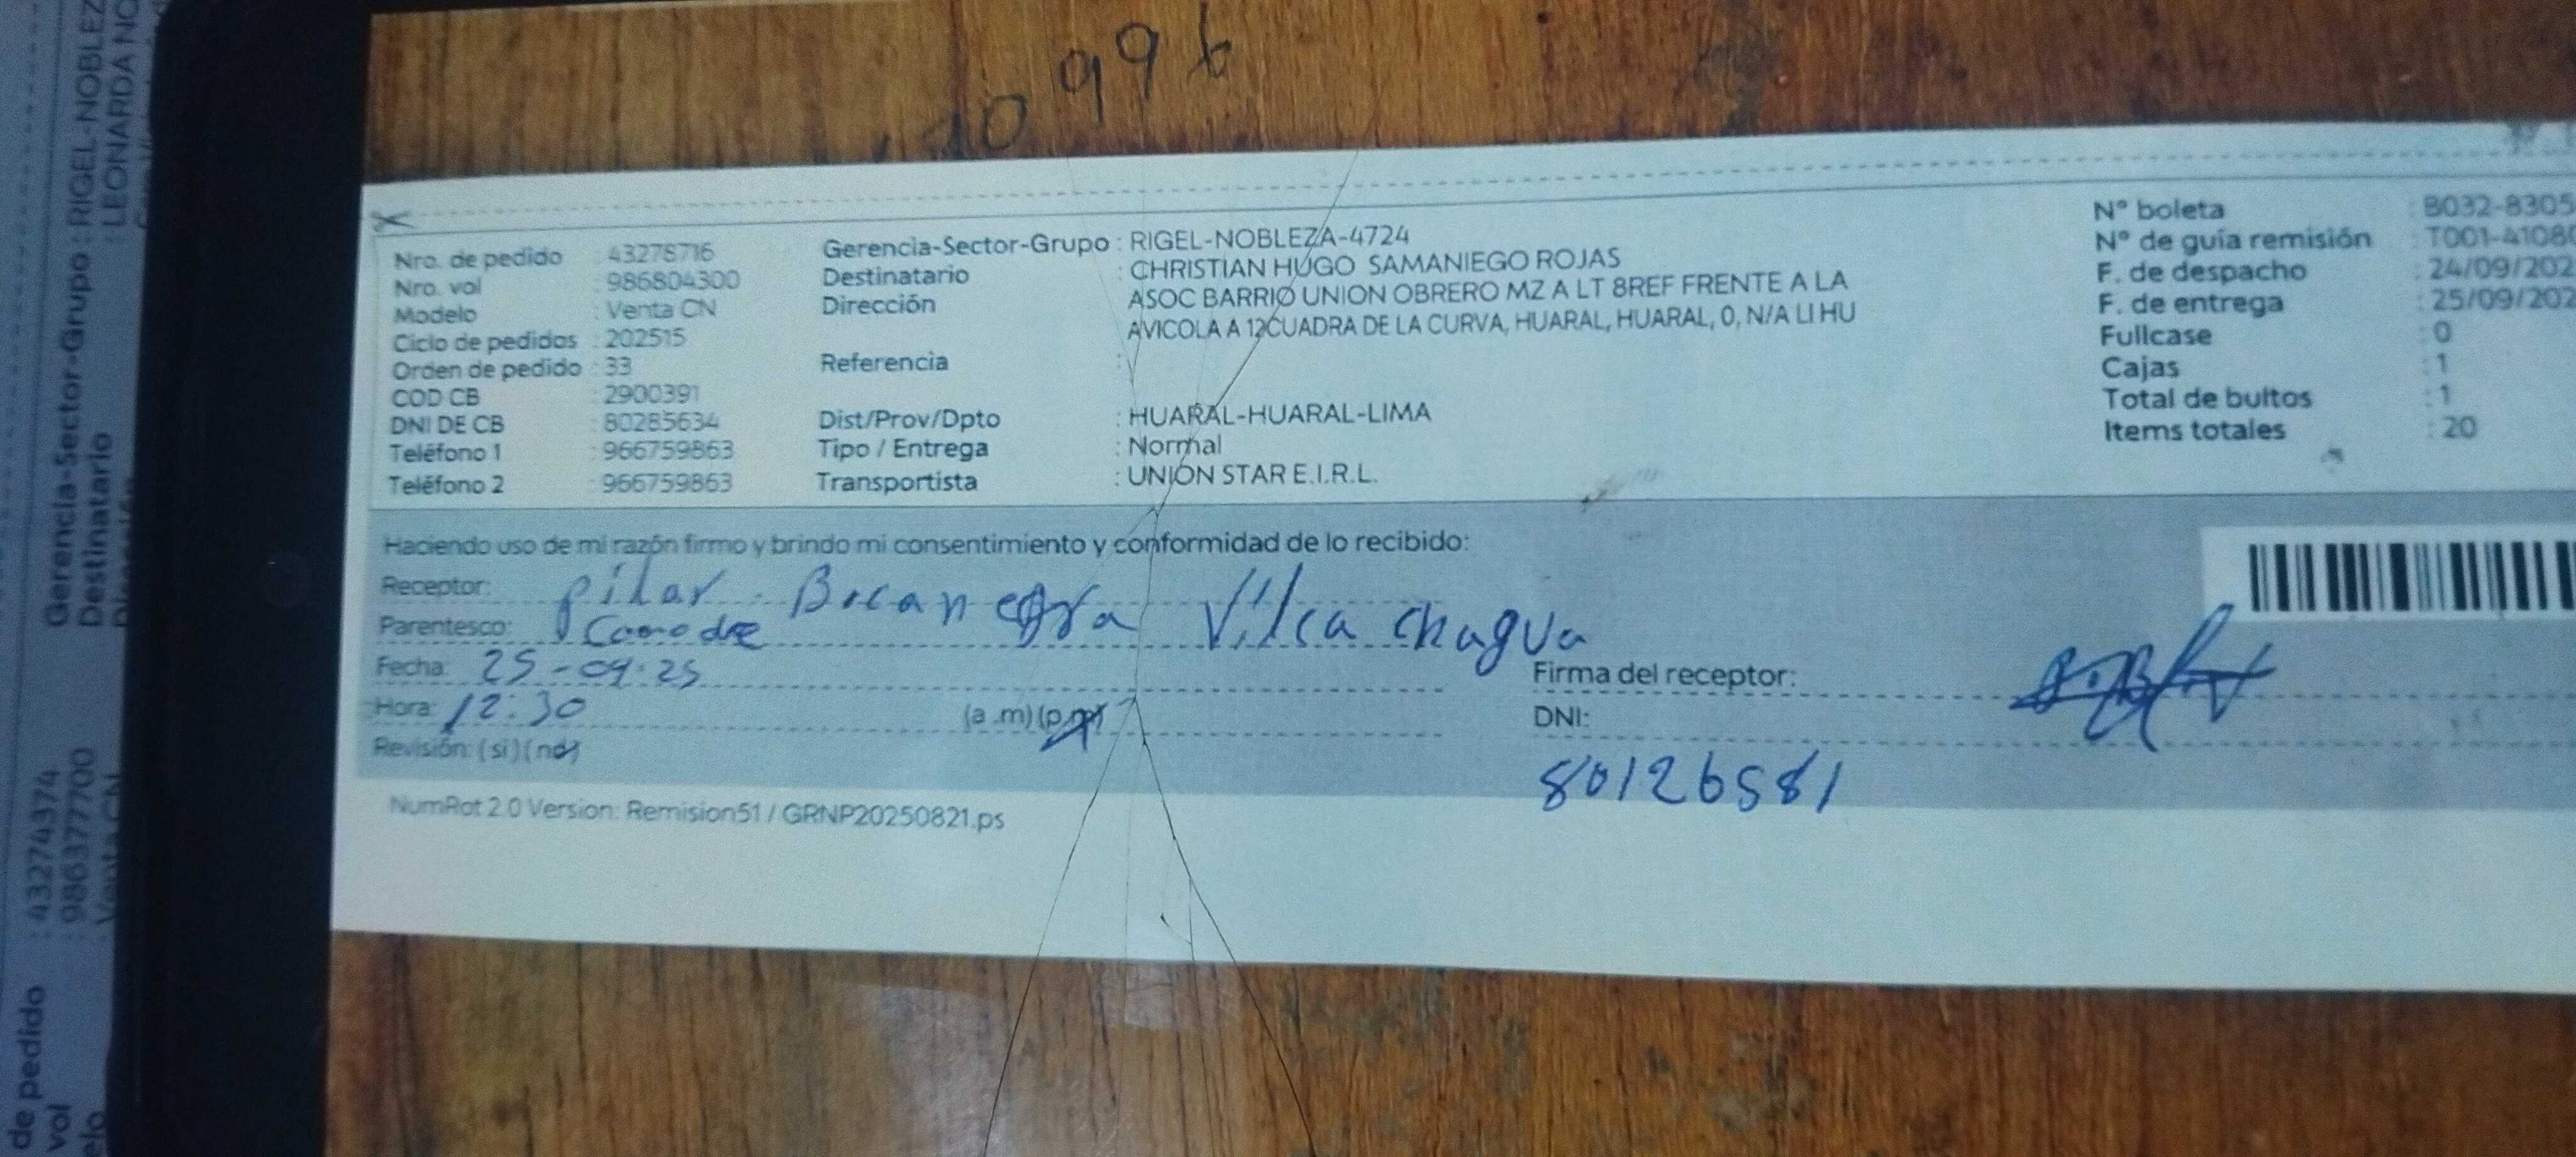 996
Nro. de pedido : 43278716
Nro. vol : 986804300
Modelo : Venta CN
Ciclo de pedidos : 202515
Orden de pedido : 33
COD CB : 2900391
DNI DE CB : 80285634
Teléfono 1 : 966759863
Teléfono 2 : 966759863
Gerencia-Sector-Grupo : RIGEL-NOBLEZA-4724
Destinatario : CHRISTIAN HUGO SAMANIEGO ROJAS
Dirección ASOC BARRIO UNION OBRERO MZ A LT 8REF FRENTE A LA
AVICOLA A 12CUADRA DE LA CURVA, HUARAL, HUARAL, 0, N/A LI HU
Referencia :
Dist/Prov/Dpto : HUARAL-HUARAL-LIMA
Tipo / Entrega : Normal
Transportista : UNION STAR E.I.R.L.
N° boleta : B032-8305
N° de guía remisión : T001-4108
F. de despacho : 24/09/202
F. de entrega : 25/09/202
Fullcase : 0
Cajas : 1
Total de bultos : 1
Items totales : 20
Haciendo uso de mi razón firmo y brindo mi consentimiento y conformidad de lo recibido:
Receptor: Pilar Bocanegra Vilcachagua
Parentesco: Comadre
Fecha: 25-09-25
Hora: 12:30 (a .m) (p.m)
Revisión: (si) (no)
Firma del receptor:
DNI:
80126581
NumRot 2.0 Version: Remision51 / GRNP20250821.ps
Gerencia-Sector-Grupo : RIGEL-NOBLEZ
Destinatario : LEONARDA NO
de pedido : 43274374
vol : 986377700
elo : Venta CN